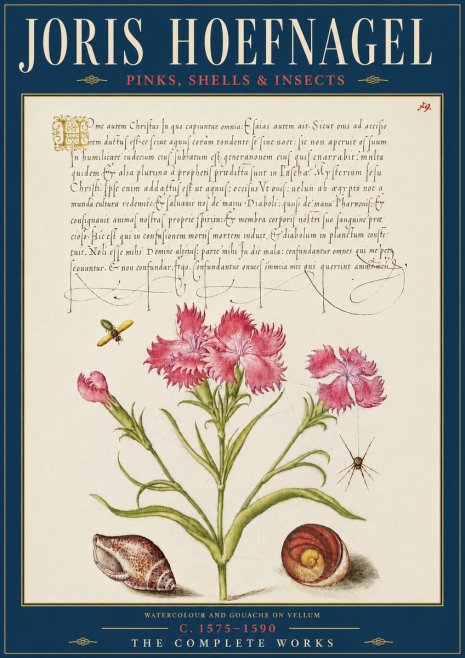 JORIS HOEFNAGEL
PINKS, SHELLS & INSECTS
79.
H me autem Christus In quo capiuntur omnia: Esaias autem ait. Sicut ouis ad occisio
nem est agnus coram tondente se sine uoce: sic non aperuit os suum
In humilicate iudicium eius est. generanonem eius quis enarrabit:
quidem. Et alia plurima a prophetis sunt in Pascha: Mysterium Jesu
Christi. Ipse enim est ut agnus: occisus ut ouis: uelun ab ægypto
munda cultura redemit: Et soluauc nos de manu Diaboli: quasi de manu Pharaonis: Et
consignauit animas nostras proprie Et membra corporis nostri suo sanguine
cioso. Hic est qui in confusionem mortis mortem induit, Et diabolum in planctum
tuit. Noli esse mihi Domine alienus: parce mihi In die mala: confundantur omnes qui me
Et non confundar, Ego. Confundantur
WATERCOLOUR AND GOUACHE ON VELLUM
C. 1575–1590
THE COMPLETE WORKS